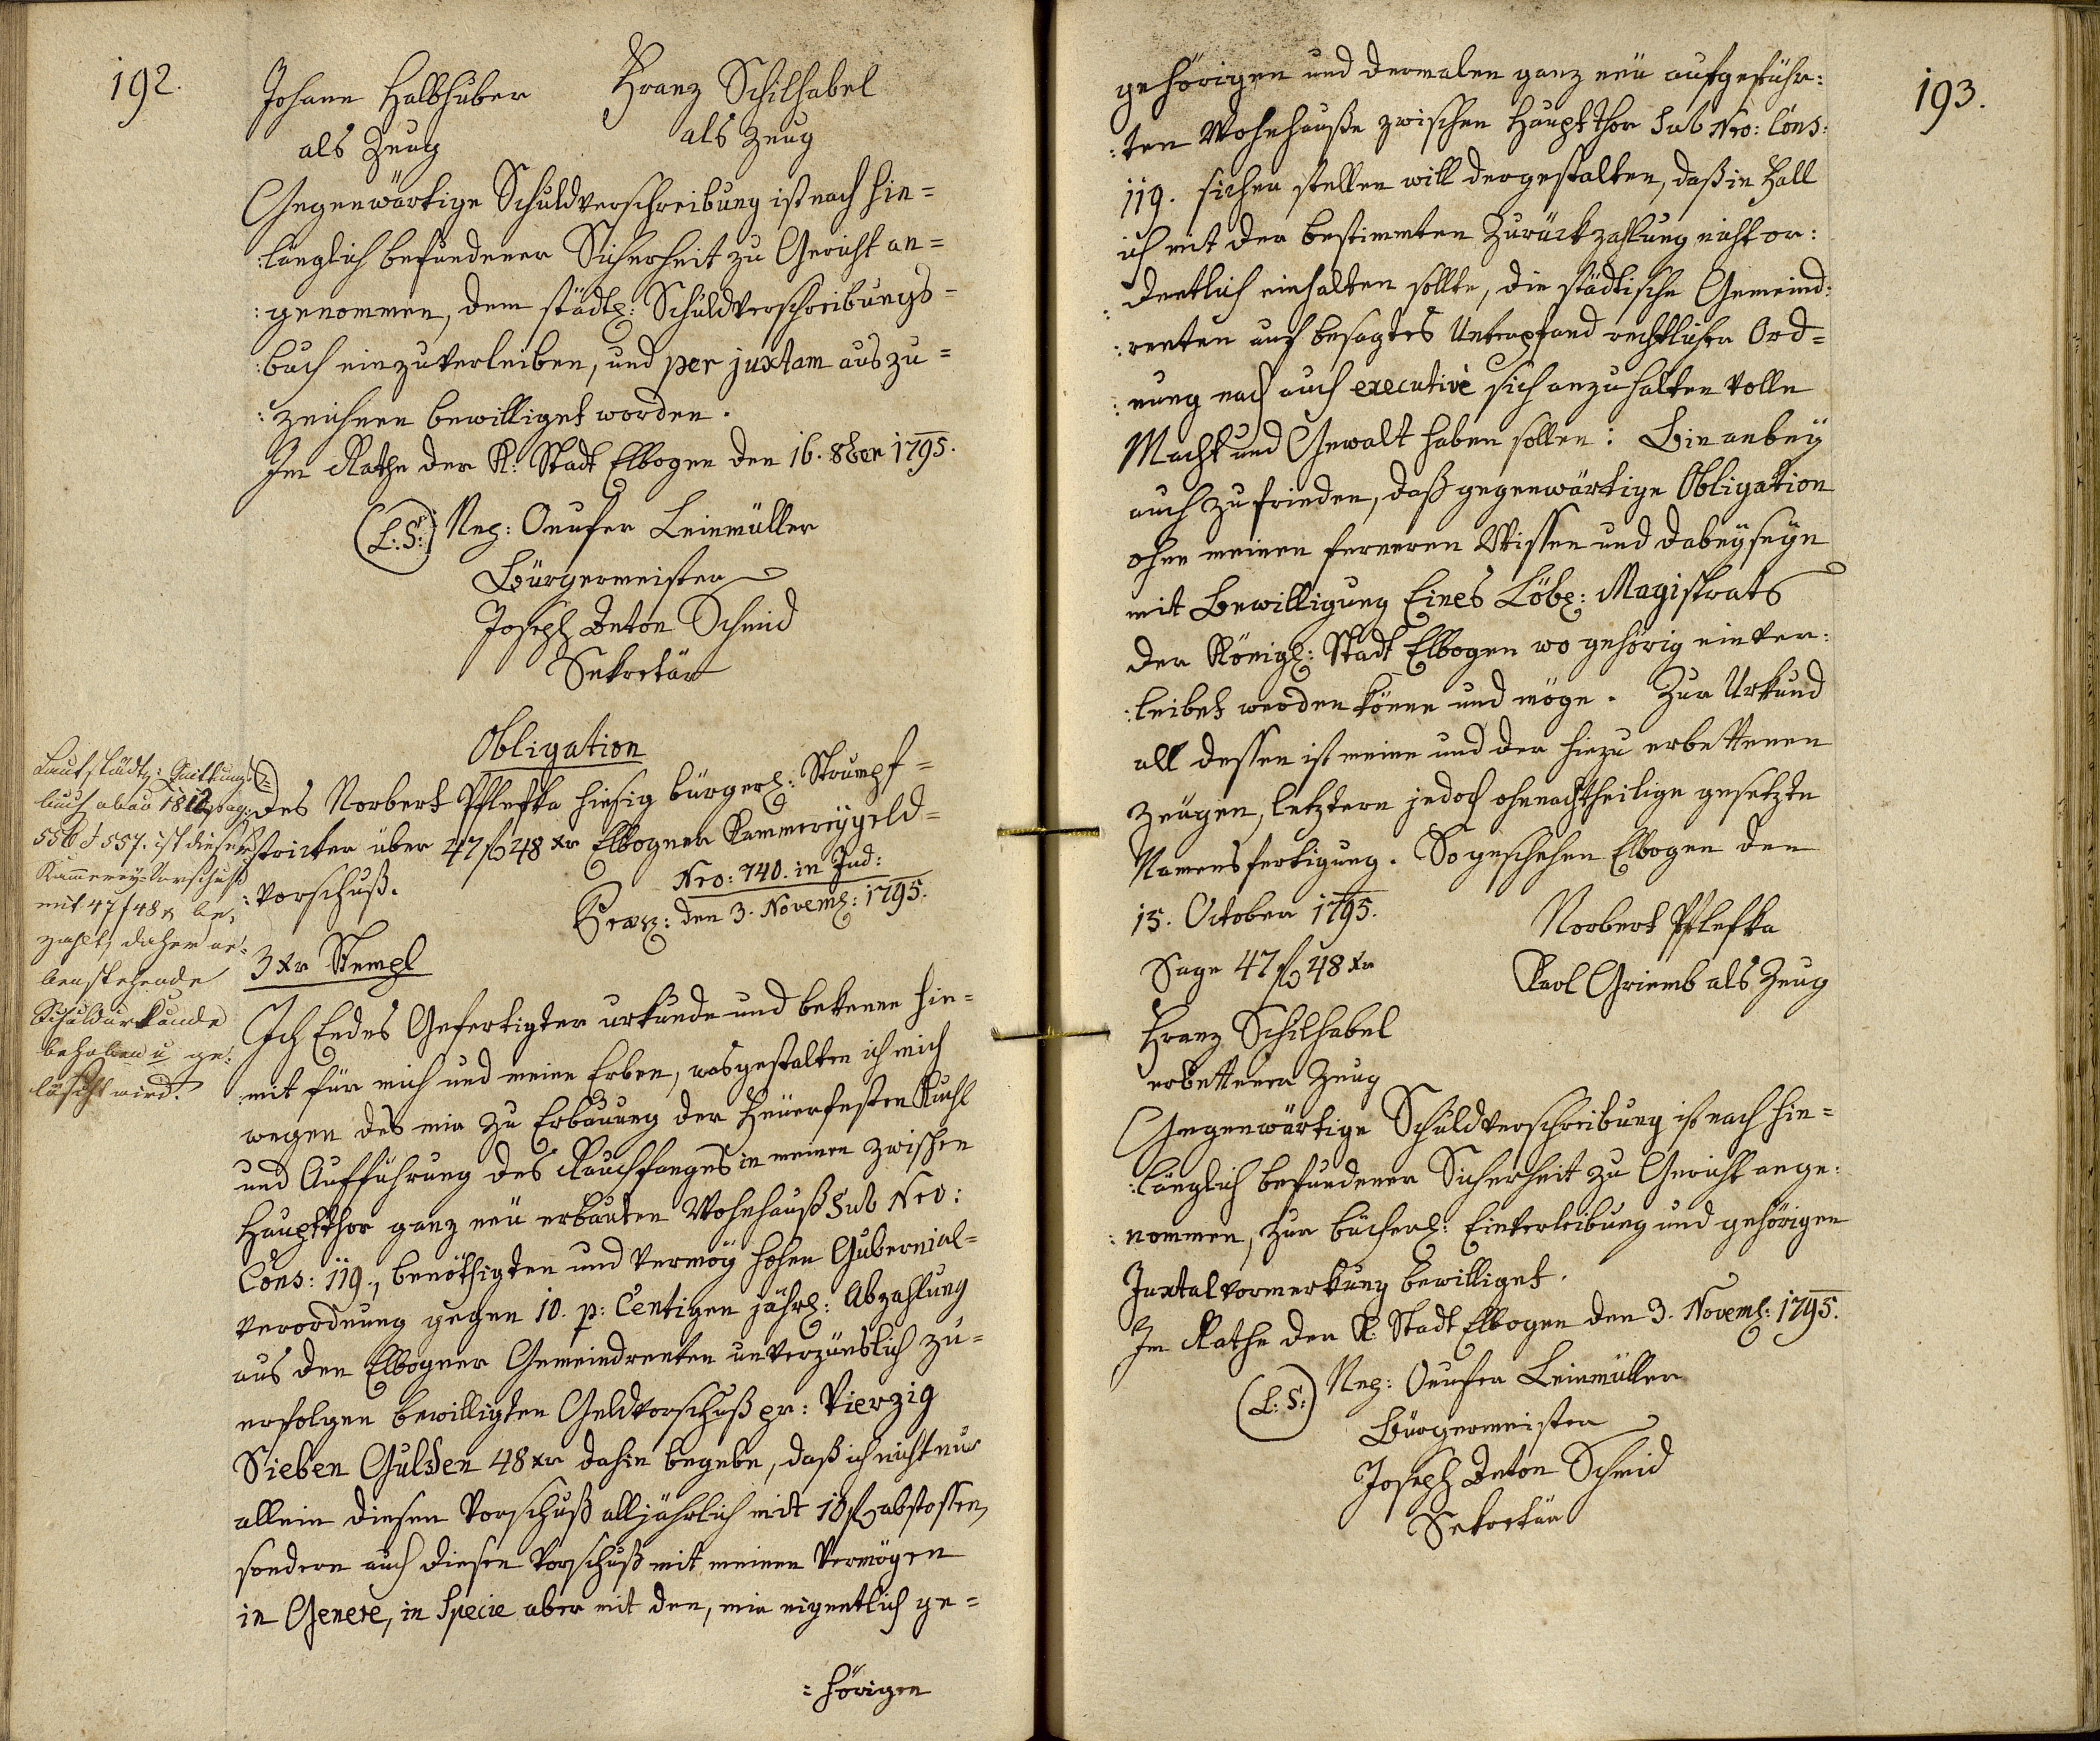 192.
Johann Halbhuber Franz Schilhabel
als Zeug als Zeug
Gegenwärtige Schuldverschreibung ist nach hin=
:länglich befundener Sicherheit zu Gericht an=
:genommen, dem städtl: Schuldverschreibungs=
:buch einzuverleiben, und per juxtam auszu=
:zeichnen bewilliget worden.
Im Rathe der K: Stadt Elbogen den 16. 8ber 1795.
(L:S:) Nep: Onufer Leinmüller
Bürgermeister
Joseph Anton Schmid
Sekretär
Obligation
des Norbert Pfleska hiesig bürgerl: Strumpf=
:stricker über 47 f 48 xr Elbogner Kammereygeld=
:vorschuß.
Nro: 740. in Jud:
Praes: den 3. Novemb: 1795.
Laut städtl: Quittungs
buch alias 1812 pag:
556 & 557. ist dieser
Kammerey-Vorschuß
mit 47 f 48 x be=
zahlt, daher ne=
benstehende
Schuldurkunde
behoben u ge=
löscht wird.
3 xr Stempl
Ich Endes Gefertigter urkunde und bekenne hin=
:mit für mich und meine Erben, wasgestalten ich mich
wegen des mir zu Erbauung der Feuerfesten Kuchl
und Aufführung des Rauchfanges in meinen zwischen
Hauptthor ganz neu erbauten Wohnhauß Sub Nro:
Cons: 119., benöthigten und vermög hohen Gubernial=
verordnung gegen 10. p: Centigen jährl: Abzahlung
aus den Elbogner Gemeindrenten unverzünslich zu=
erfolgen bewilligten Geldvorschuß pr: Vierzig
Sieben Gulden 48 xr dahin begebe, daß ich nicht nur
allein diesen Vorschuß alljährlich mit 10 f abstossen,
sondern auch diesen Vorschuß mit meinen Vermögen
in Genere, in Specie aber mit den, mir eigentlich ge=
=hörigen
193.
gehörigen und dermalen ganz neu aufgeführ:
:ten Wohnhauße zwischen Hauptthor Sub Nro: Cons:
119. sicher stellen will dergestalten, daß in Fall
ich mit der bestimmten Zurückzahlung nicht or:
:dentlich einhalten sollte, die städtische Gemeind:
:renten auf besagtes Unterpfand rechtlicher Ord=
:nung nach auch executivè sich anzuhalten volle
Macht und Gewalt haben sollen: Bin anbey
auch zufrieden, daß gegenwärtige Obligation
ohne meinen ferneren Wissen und dabeyseyn
mit Bewilligung Eines Löbl: Magistrats
der Königl: Stadt Elbogen wo gehörig einver:
:leibet werden könne und möge. Zur Urkund
all dessen ist meine und der hiezu erbettenen
Zeugen, letztern jedoch ohnnachtheilige gesetzte
Namensfertigung. So geschehen Elbogen den
15. October 1795.
Norbert Pfleska
Sage 47 f 48 xr
Karl Griemb als Zeug
Franz Schilhabel
erbettener Zeug
Gegenwärtige Schuldverschreibung ist nach hin=
:länglich befundener Sicherheit zu Gericht ange:
:nommen, zur bücherl: Einverleibung und gehörigen
Juxtalvormerkung bewilliget.
Im Rathe der K. Stadt Elbogen den 3. Novemb: 1795.
(L:S:) Nep: Onufer Leinmüller
Bürgermeister
Joseph Anton Schmid
Sekretär